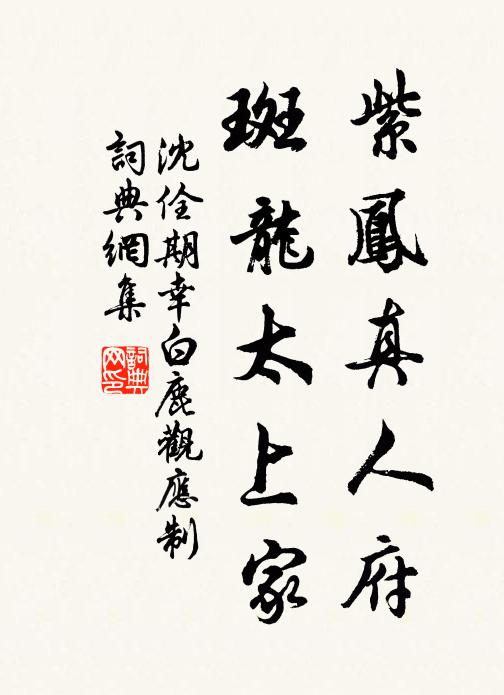 紫鳳真人府
斑龍太上家
沈佺期幸白鹿觀應制
詞典網集
詞典網印